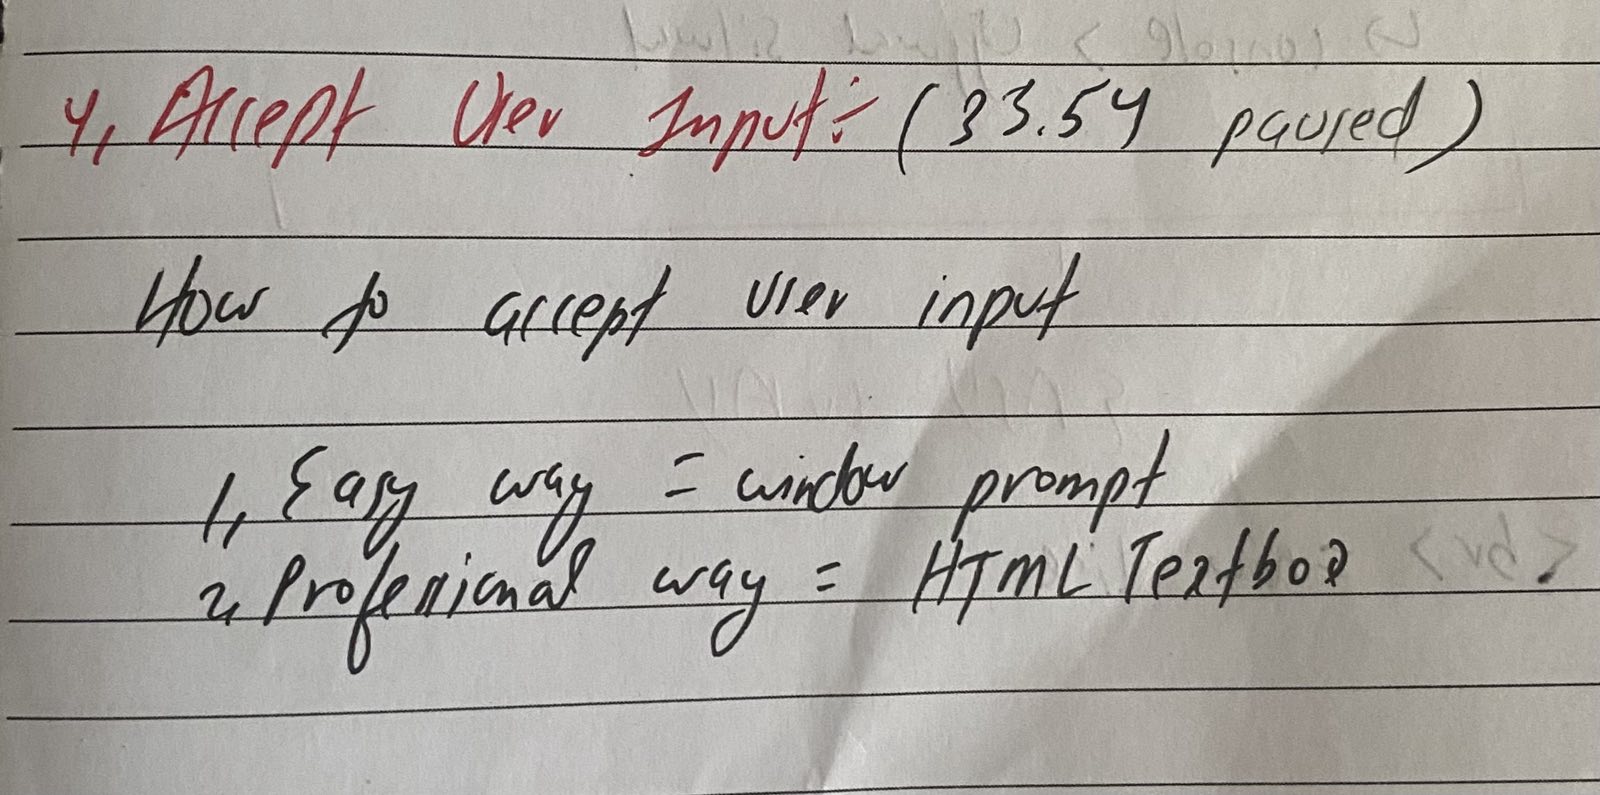 4, Accept User Input:- (33.54 paused)
How to accept user input
1, Easy way = window prompt
2, Professional way = HTML Textbox